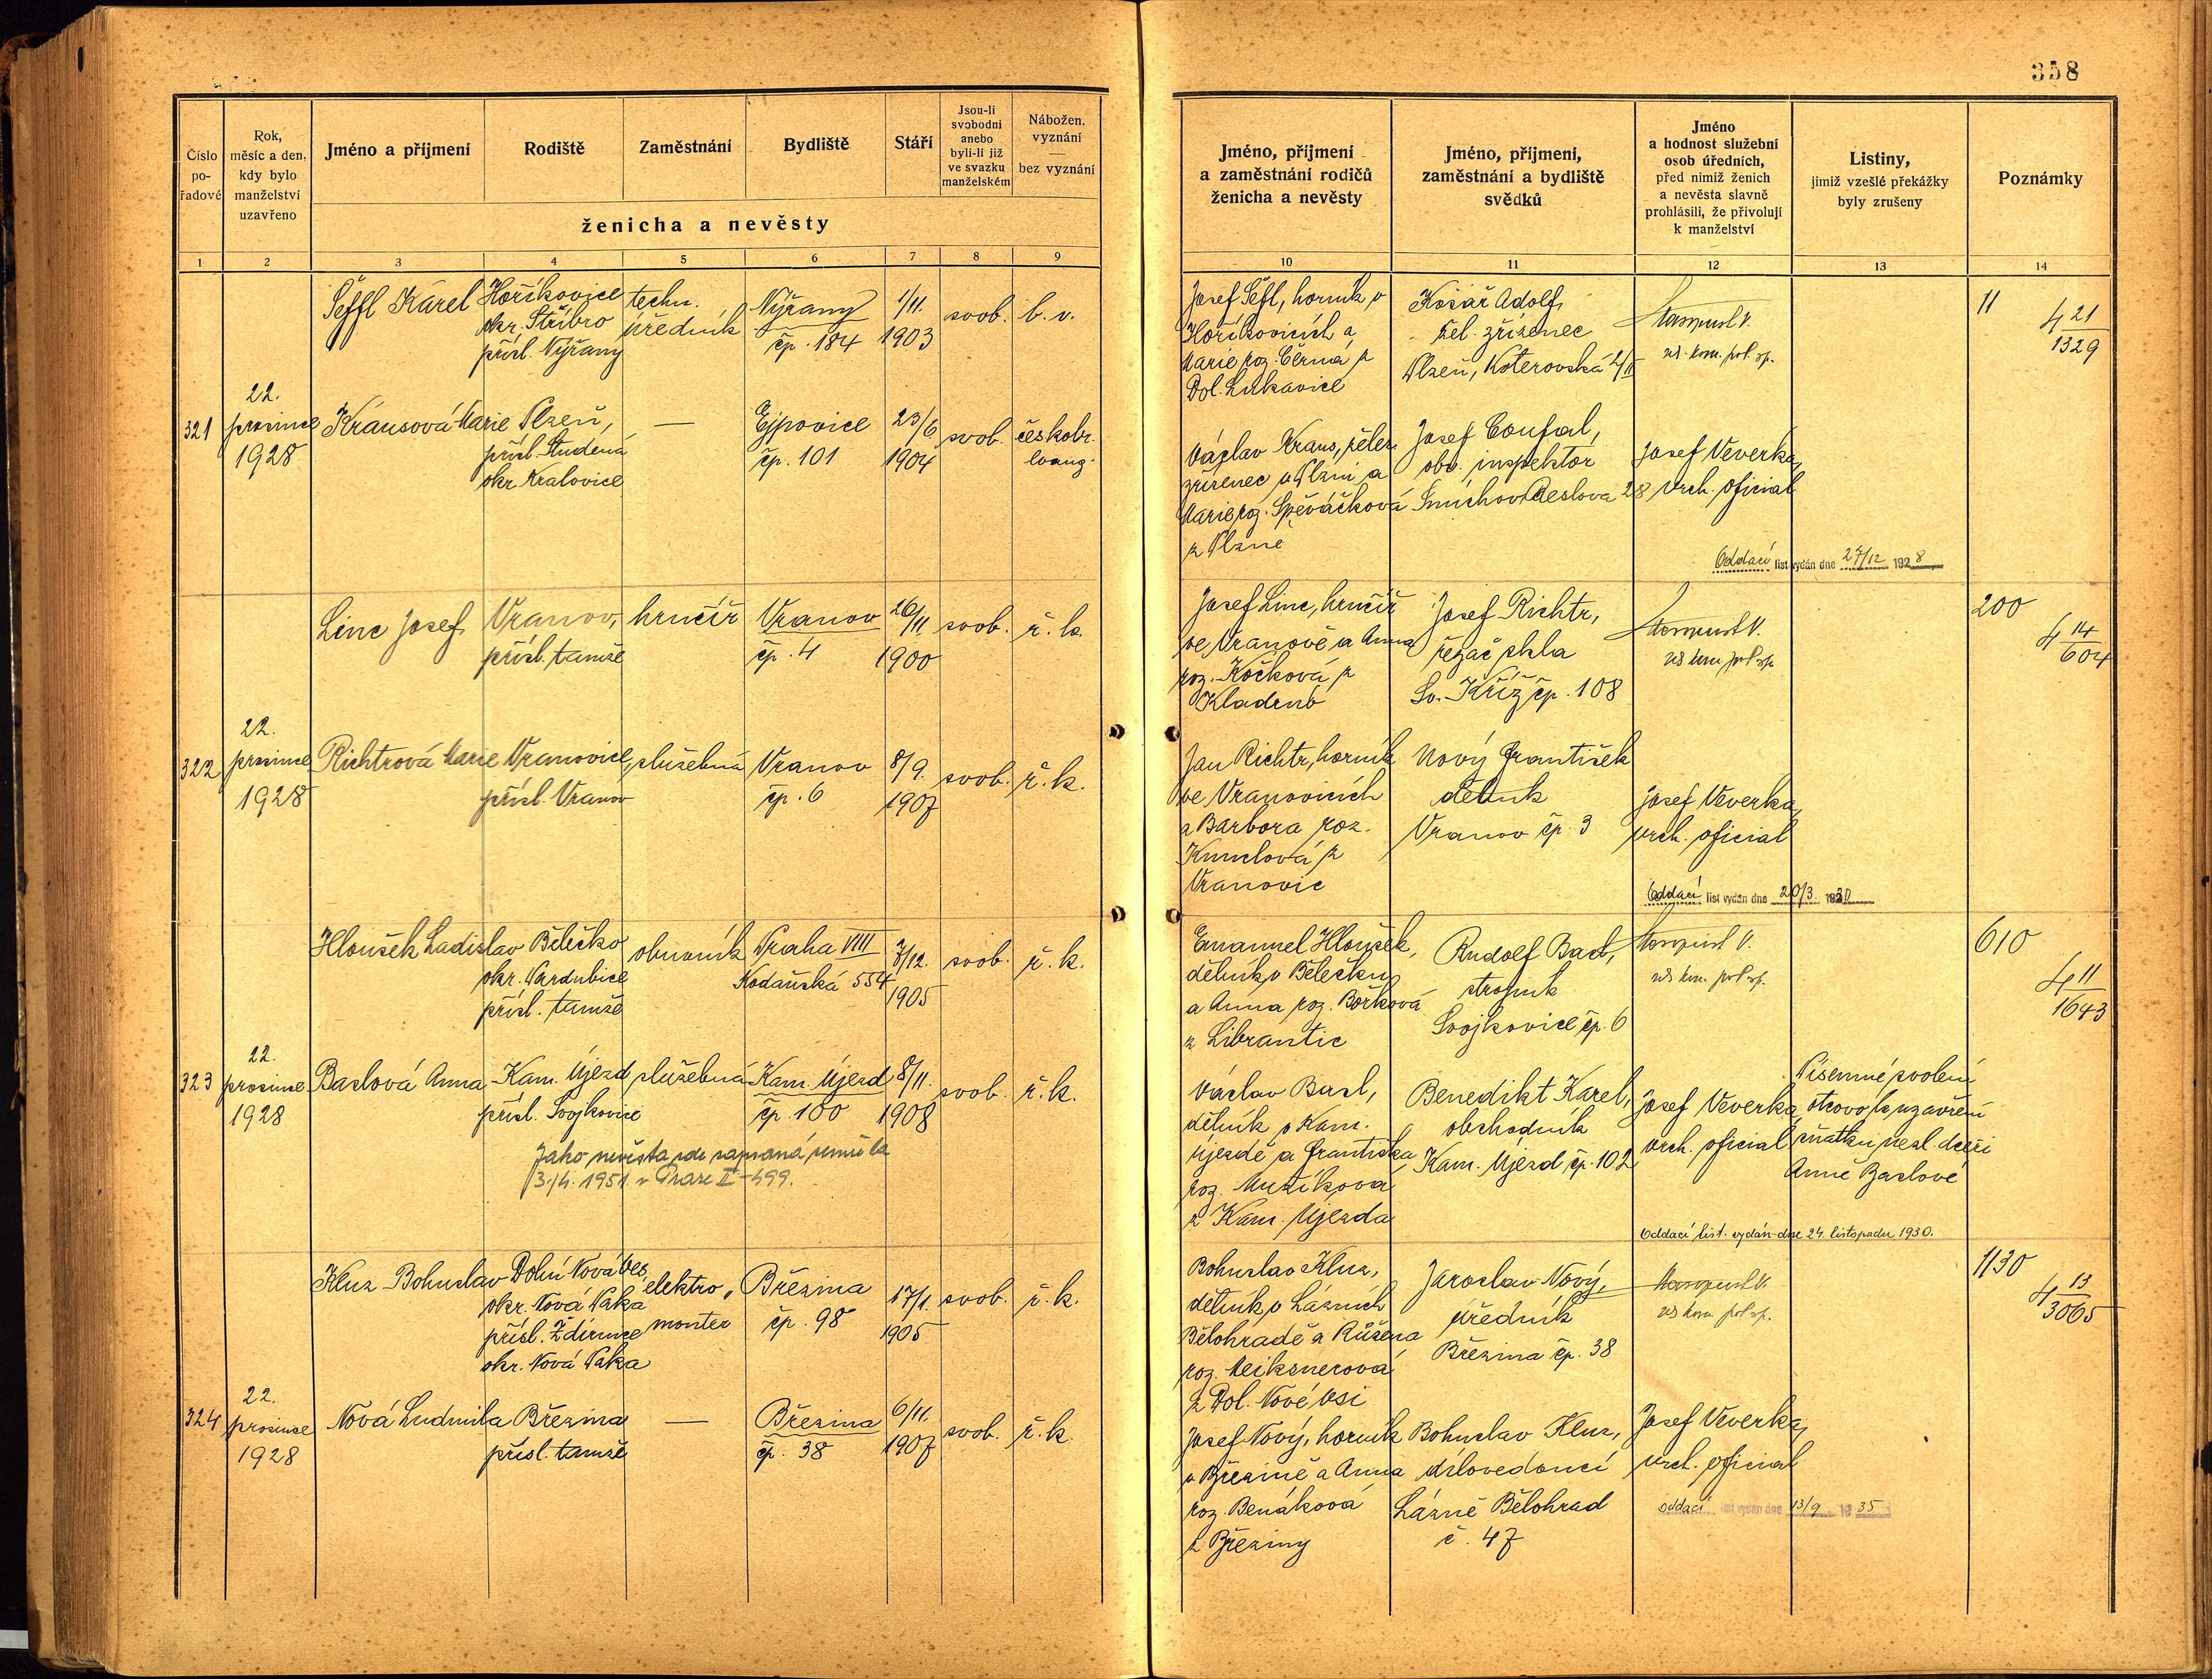 358
Číslo
po-
řadové
Rok,
měsíc a den,
kdy bylo
manželství
uzavřeno
Jméno a příjmení
Rodiště
Zaměstnání
Bydliště
Stáří
Jsou-li
svobodni
anebo
byli-li již
ve svazku
manželském
Nábožen.
vyznání
—
bez vyznání
ženicha a nevěsty
Jméno, příjmení
a zaměstnání rodičů
ženicha a nevěsty
Jméno, příjmení,
zaměstnání a bydliště
svědků
Jméno
a hodnost služební
osob úředních,
před nimiž ženich
a nevěsta slavně
prohlásili, že přivolují
k manželství
Listiny,
jimiž vzešlé překážky
byly zrušeny
Poznámky
1 2 3 4 5 6 7 8 9 10 11 12 13 14
Šeffl Karel
Hoříkovice
okr. Stříbro
přísl. Nýřany
techn.
úředník
Nýřany
čp. 184
1/11.
1903
svob.
b. v.
Josef Šefl, horník v
Hoříkovicích a
Marie roz. Černá z
Dol. Lukavice
Košař Adolf,
žel. zřízenec
Plzeň, Koterovská
11
4 21
1329
321
22.
prosince
1928
Krausová Marie
Plzeň,
přísl. Studená
okr. Kralovice
—
Ejpovice
čp. 101
23/6
1904
svob.
českobr.
evang.
Václav Kraus, želez.
zřízenec v Plzni a
Marie roz. Spěváčková
z Plzně
Josef Coufal,
obv. inspektor
Smíchov, Reslova 28
Josef Veverka,
vrch. oficial
Oddací list vydán dne 27/12 1928
Linc Josef
Vranov,
přísl. tamže
hrnčíř
Vranov
čp. 4
26/11
1900
svob.
ř. k.
Josef Linc, hrnčíř
ve Vranově a Anna
roz. Kočková z
Kladrub
Josef Richtr,
řezač skla
Sv. Kříž čp. 108
200
4 14
604
322
22.
prosince
1928
Richtrová Marie
Vranovice,
přísl. Vranov
služebná
Vranov
čp. 6
8/9.
1907
svob.
ř. k.
Jan Richtr, horník
ve Vranovicích
a Barbora roz.
z
Vranovic
Nový František
dělník
Vranov čp. 3
Josef Veverka,
vrch. oficial
Oddací list vydán dne 20/3 1930
Hloušek Ladislav
Bělečko
okr. Pardubice
přísl. tamže
obuvník
Praha VIII
Kodaňská 554
7/12.
1905
svob.
ř. k.
Emanuel Hloušek,
dělník v Bělečku
a Anna roz. Borková
z Librantic
Rudolf Basl,
strojník
Svojkovice čp. 6
610
4 11
1643
323
22.
prosince
1928
Baslová Anna
Kam. Újezd
přísl. Svojkovice
služebná
Kam. Újezd
čp. 100
8/11.
1908
svob.
ř. k.
Jako nevěsta zde zapsaná, zemřela
3./4. 1951 v Praze II-499.
Václav Basl,
dělník v Kam.
Újezdě a Františka
roz. Mužíková
z Kam. Újezda
Benedikt Karel,
obchodník
Kam. Újezd, čp. 102
Josef Veverka,
vrch. oficial
Písemné svolení
otcovo k uzavření
sňatku nezl. dceři
Anně Baslové
Oddací list vydán dne 24. listopadu 1930.
Kluz Bohuslav
Dolní Nová Ves
okr. Nová Paka
přísl. Ždírnice
okr. Nová Paka
elektro-
monter
Březina
čp. 98
17/1.
1905
svob.
ř. k.
Bohuslav Kluz,
dělník v Lázních
Bělohradě a Růžena
roz. Meiksnerová
z Dol. Nové Vsi
Jaroslav Nový,
úředník
Březina čp. 38
1130
4 13
3065
324
22.
prosince
1928
Nová Ludmila
Březina
přísl. tamže
—
Březina
čp. 38
6/11.
1907
svob.
ř. k.
Josef Nový, horník
v Březině a Anna
roz. Benáková
z Březiny
Bohuslav Kluz,
dílovedoucí
Lázně Bělohrad
č. 47
Josef Veverka,
vrch. oficial
oddací list vydán dne 13/9 1935